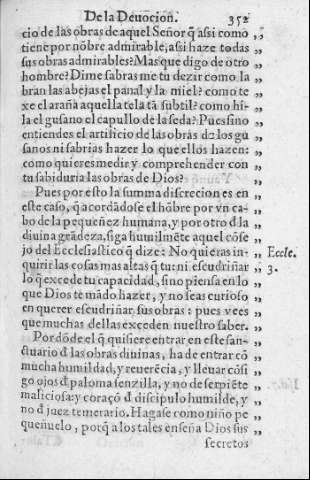 De la Deuocion. 352
cio de las obras de aquel Señor q̃ assi como ,,
tiene por nõbre admirable, assi haze todas ,,
sus obras admirables? Mas que digo de otro ,,
hombre? Dime sabras me tu dezir como la ,,
bran las abejas el panal y la miel? como te ,,
xe el araña aquella tela tã subtil? como hi- ,,
la el gusano el capullo de la seda? Pues sino ,,
entiendes el artificio de las obras de los gu ,,
sanos ni sabrias hazer lo que ellos hazen: ,,
como quieres medir y comprehender con ,,
tu sabiduria las obras de Dios? ,,
Pues por esto la summa discrecion es en ,,
este caso, q̃ acordãdose el hõbre por vn ca- ,,
bo de la pequeñez humana, y por otro d̃ la ,,
diuina grãdeza, siga humilmẽte aquel cõse ,,
jo del Ecclesiastico q̃ dize: No quieras in- ,, Eccle.
quirir las cosas mas altas q̃ tu: ni escudriñar ,, 3.
lo q̃ excede tu capacidad, sino piensa en lo ,,
que Dios te mãdo hazer, y no seas curioso ,,
en querer escudriñar sus obras: pues vees ,,
que muchas dellas exceden nuestro saber. ,,
Por dõde el q̃ quisiere entrar en este san- ,,
ctuario d̃ las obras diuinas, ha de entrar cõ ,,
mucha humildad, y reuerẽcia, y lleuar cõsi ,,
go ojos d̃ paloma senzilla, y no de serpiẽte ,,
maliciosa: y coraçõ d̃ discipulo humilde, y ,,
no d̃ juez temerario. Hagase como niño pe ,,
queñuelo, porq̃ a los tales enseña Dios sus ,,
secretos